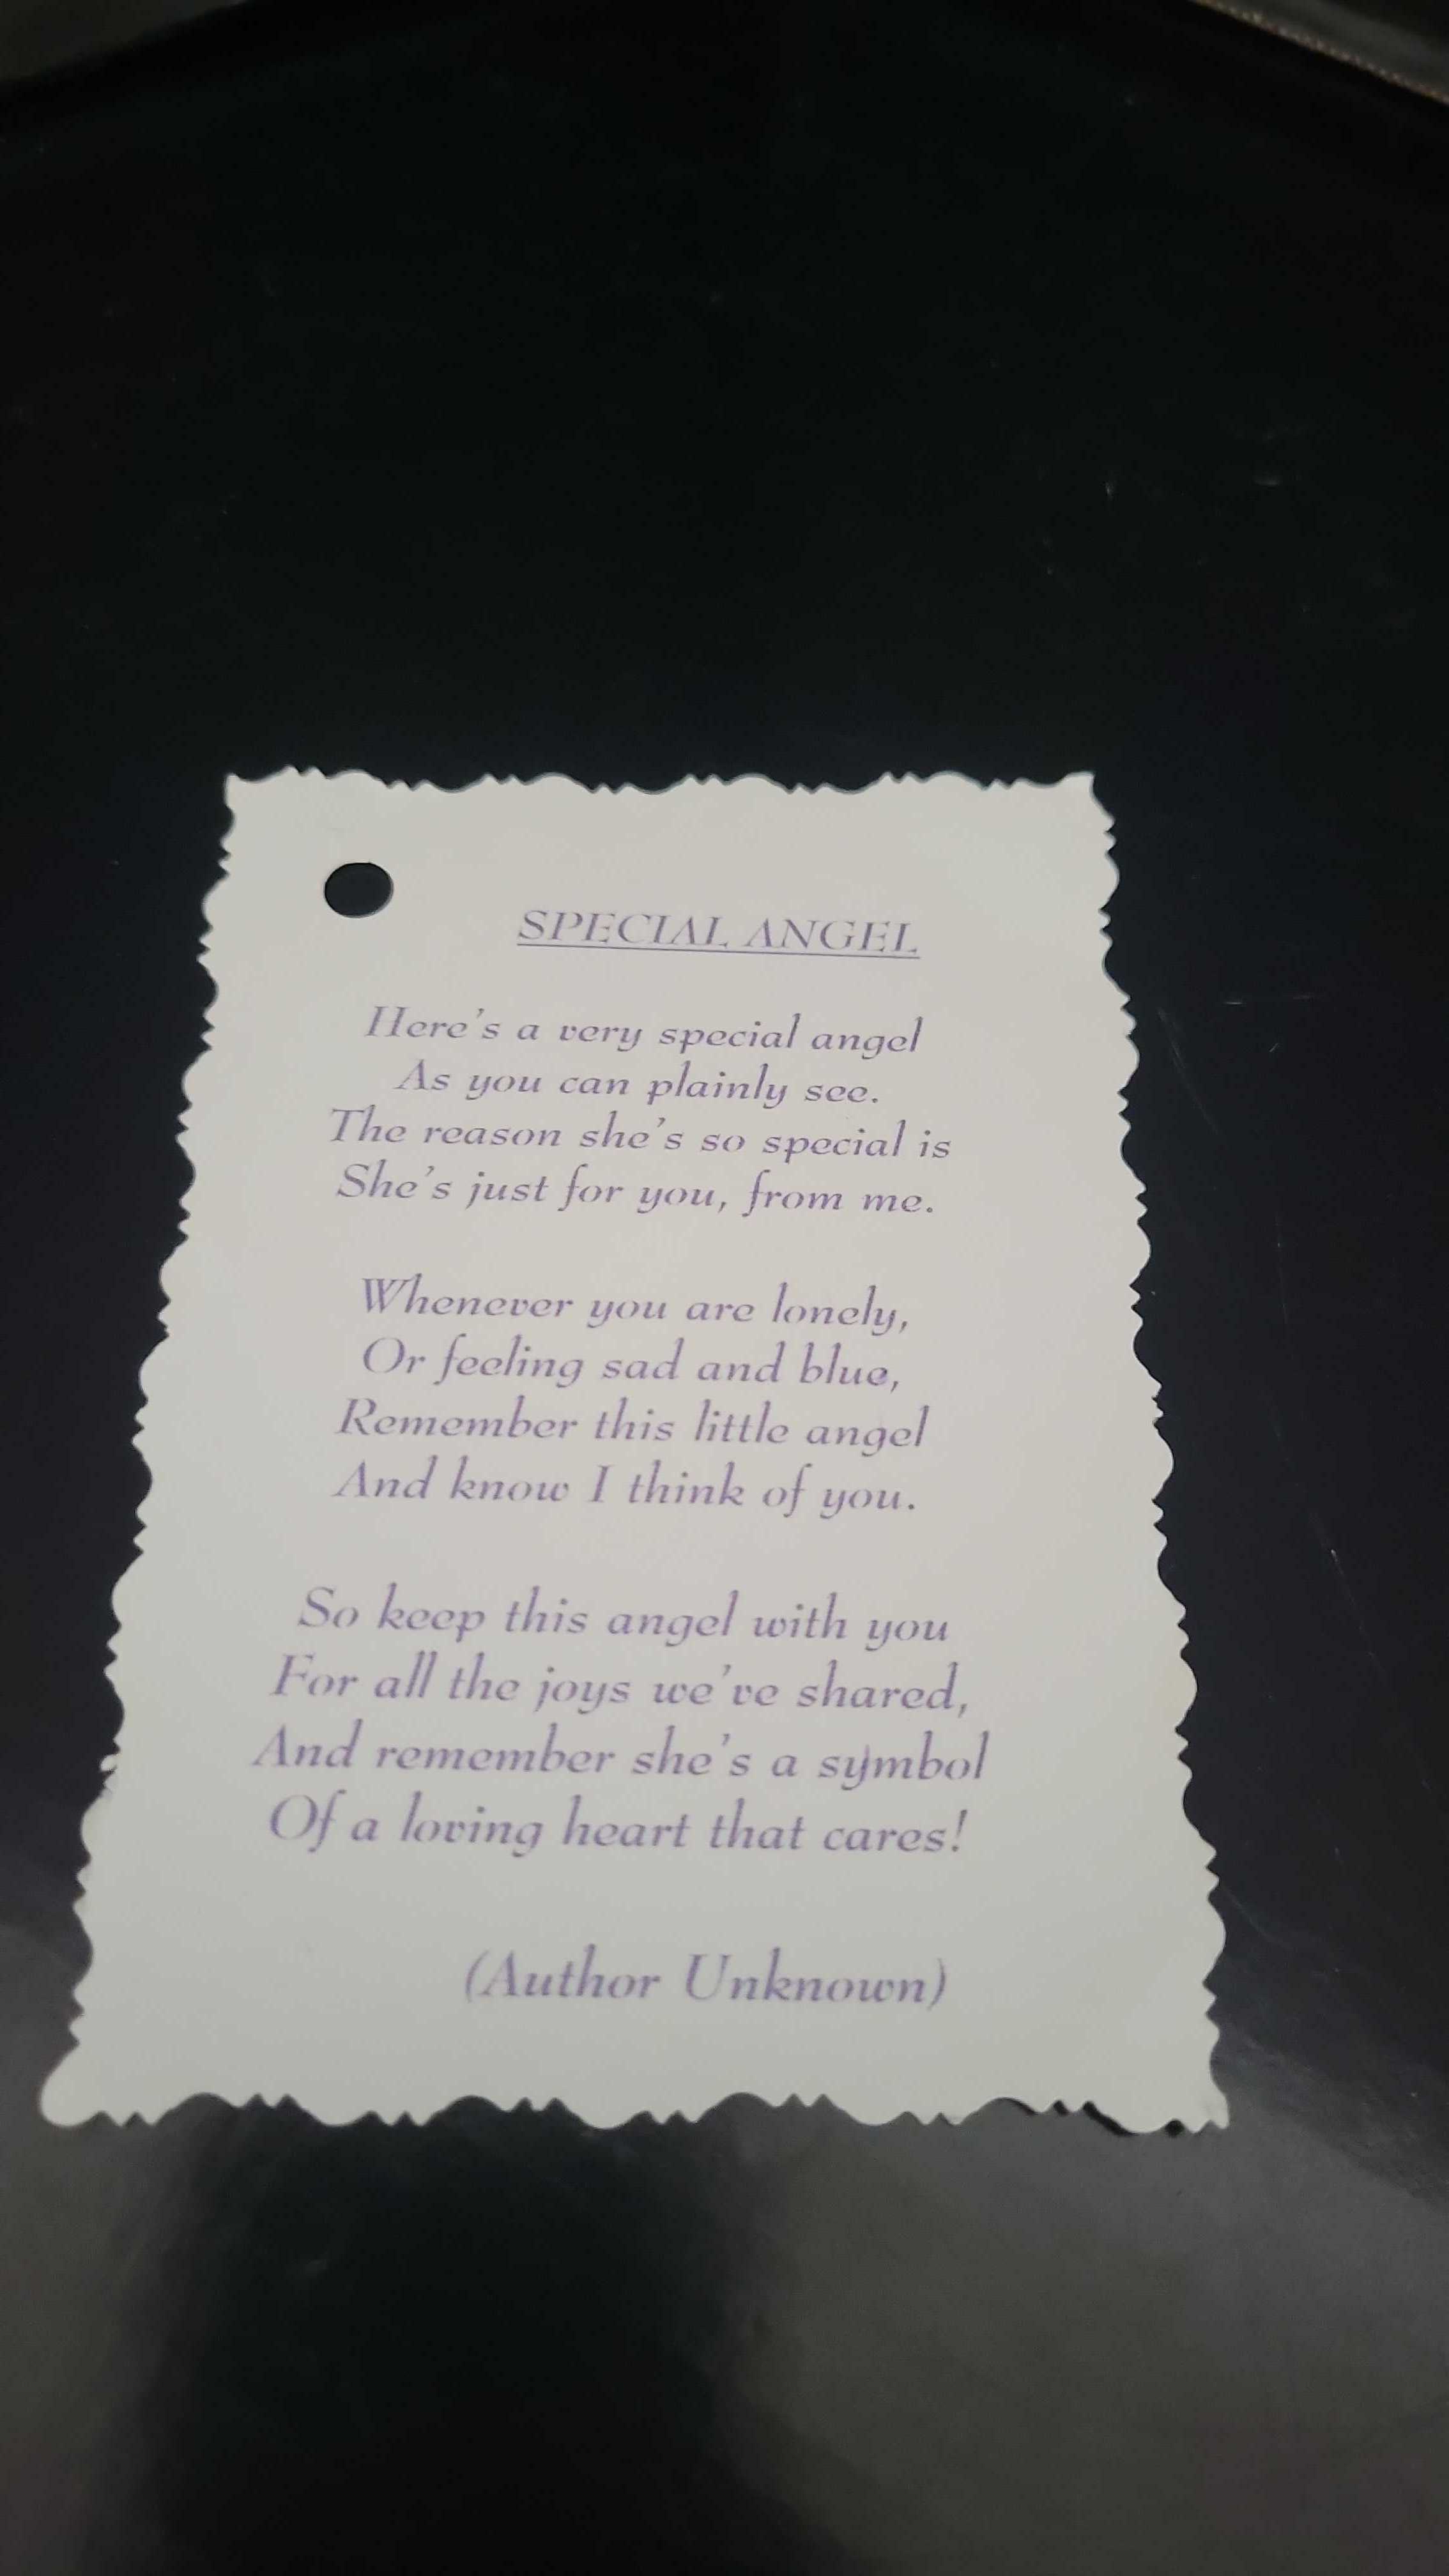 SPECIAL ANGEL
Here's a very special angel
As you can plainly see.
The reason she's so special is
She's just for you, from me.
Whenever you are lonely,
Or feeling sad and blue,
Remember this little angel
And know I think of you.
So keep this angel with you
For all the joys we've shared,
And remember she's a symbol
Of a loving heart that cares!
(Author Unknown)